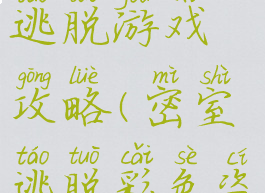 逃脱游戏
gōng lüè mì shì
攻略(密室
táo tuō cǎi sè cí
逃脱彩色瓷